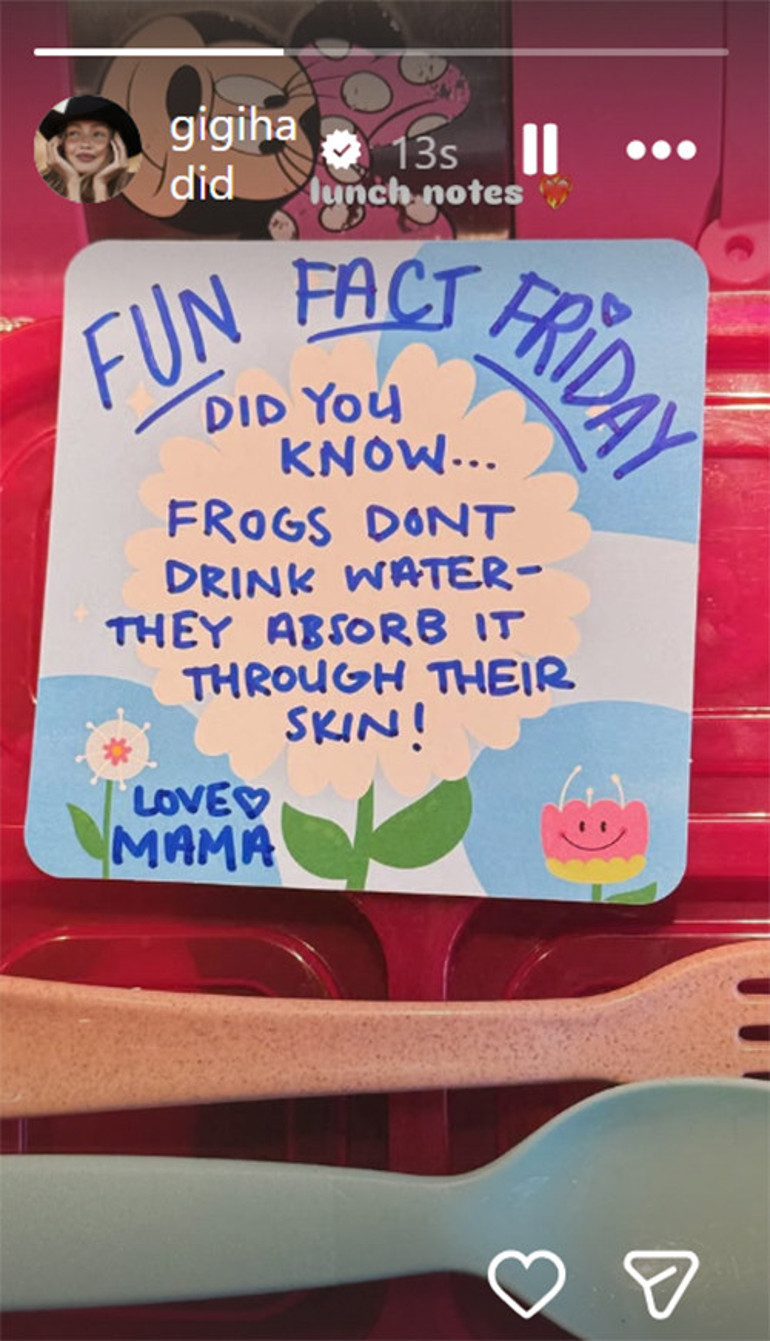 gigiha
did
13s
lunch notes
FUN FACT FRIDAY
DID YOU
KNOW...
FROGS DONT
DRINK WATER-
THEY ABSORB IT
THROUGH THEIR
SKIN!
LOVE
MAMA